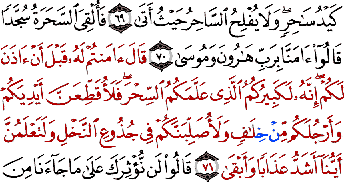 كَيْدُ سَٰحِرٍ ۖ وَلَا يُفْلِحُ السَّاحِرُ حَيْثُ أَتَىٰ ٦٩ فَأُلْقِيَ السَّحَرَةُ سُجَّدًا
قَالُوٓا۟ ءَامَنَّا بِرَبِّ هَٰرُونَ وَمُوسَىٰ ٧٠ قَالَ ءَامَنتُمْ لَهُۥ قَبْلَ أَنْ ءَاذَنَ
لَكُمْ ۖ إِنَّهُۥ لَكَبِيرُكُمُ الَّذِى عَلَّمَكُمُ السِّحْرَ ۖ فَلَأُقَطِّعَنَّ أَيْدِيَكُمْ
وَأَرْجُلَكُم مِّنْ خِلَٰفٍ وَلَأُصَلِّبَنَّكُمْ فِى جُذُوعِ النَّخْلِ وَلَتَعْلَمُنَّ
أَيُّنَآ أَشَدُّ عَذَابًا وَأَبْقَىٰ ٧١ قَالُوا۟ لَن نُّؤْثِرَكَ عَلَىٰ مَا جَآءَنَا مِنَ